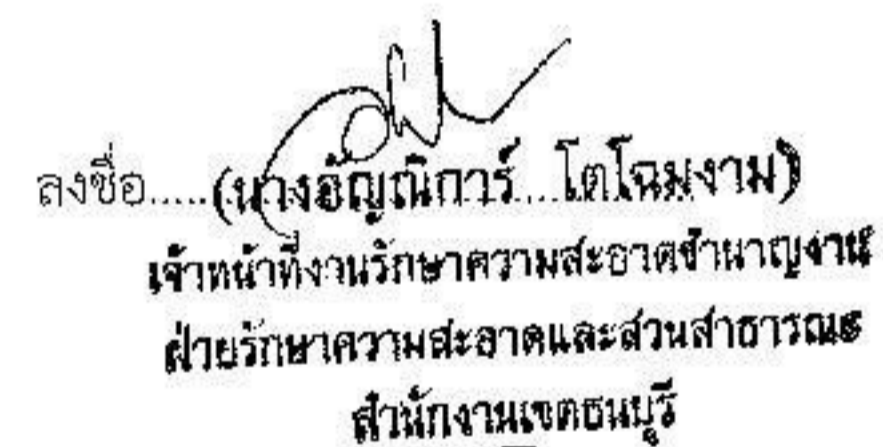 ลงชื่อ.....(นางอัญณิการ์...โตโฉมงาม)
เจ้าหน้าที่งานรักษาความสะอาดชำนาญงาน
ฝ่ายรักษาความสะอาดและสวนสาธารณะ
สำนักงานเขตธนบุรี